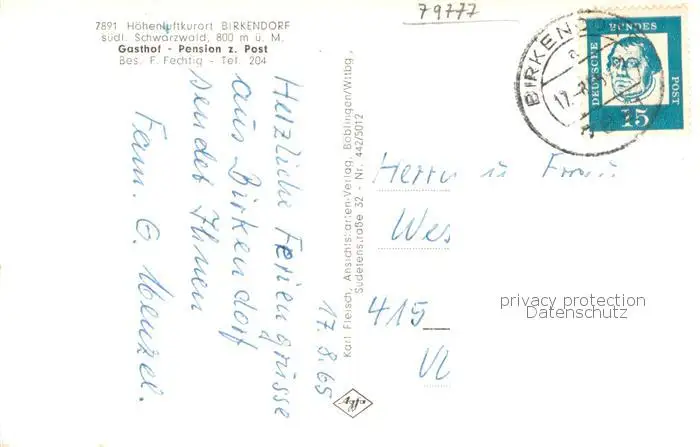 79777
7891 Höhenluftkurort BIRKENDORF
südl. Schwarzwald, 800 m ü. M.
Gasthof - Pension z. Post
Bes. F. Fechtig - Tel. 204
17.8.65
Herzliche Feriengrüsse
aus Birkendorf
sendet Ihnen
Fam. G. Menzel.
Karl Fleisch, Ansichtskarten-Verlag, Böblingen/Wttbg.,
Sudetenstraße 32 - Nr. 442/5012
Agfa
BIRKENDO
a
DEUTSCHE
BUNDES
POST
15
Herrn u Frau
Wes
415
privacy protection
Datenschutz